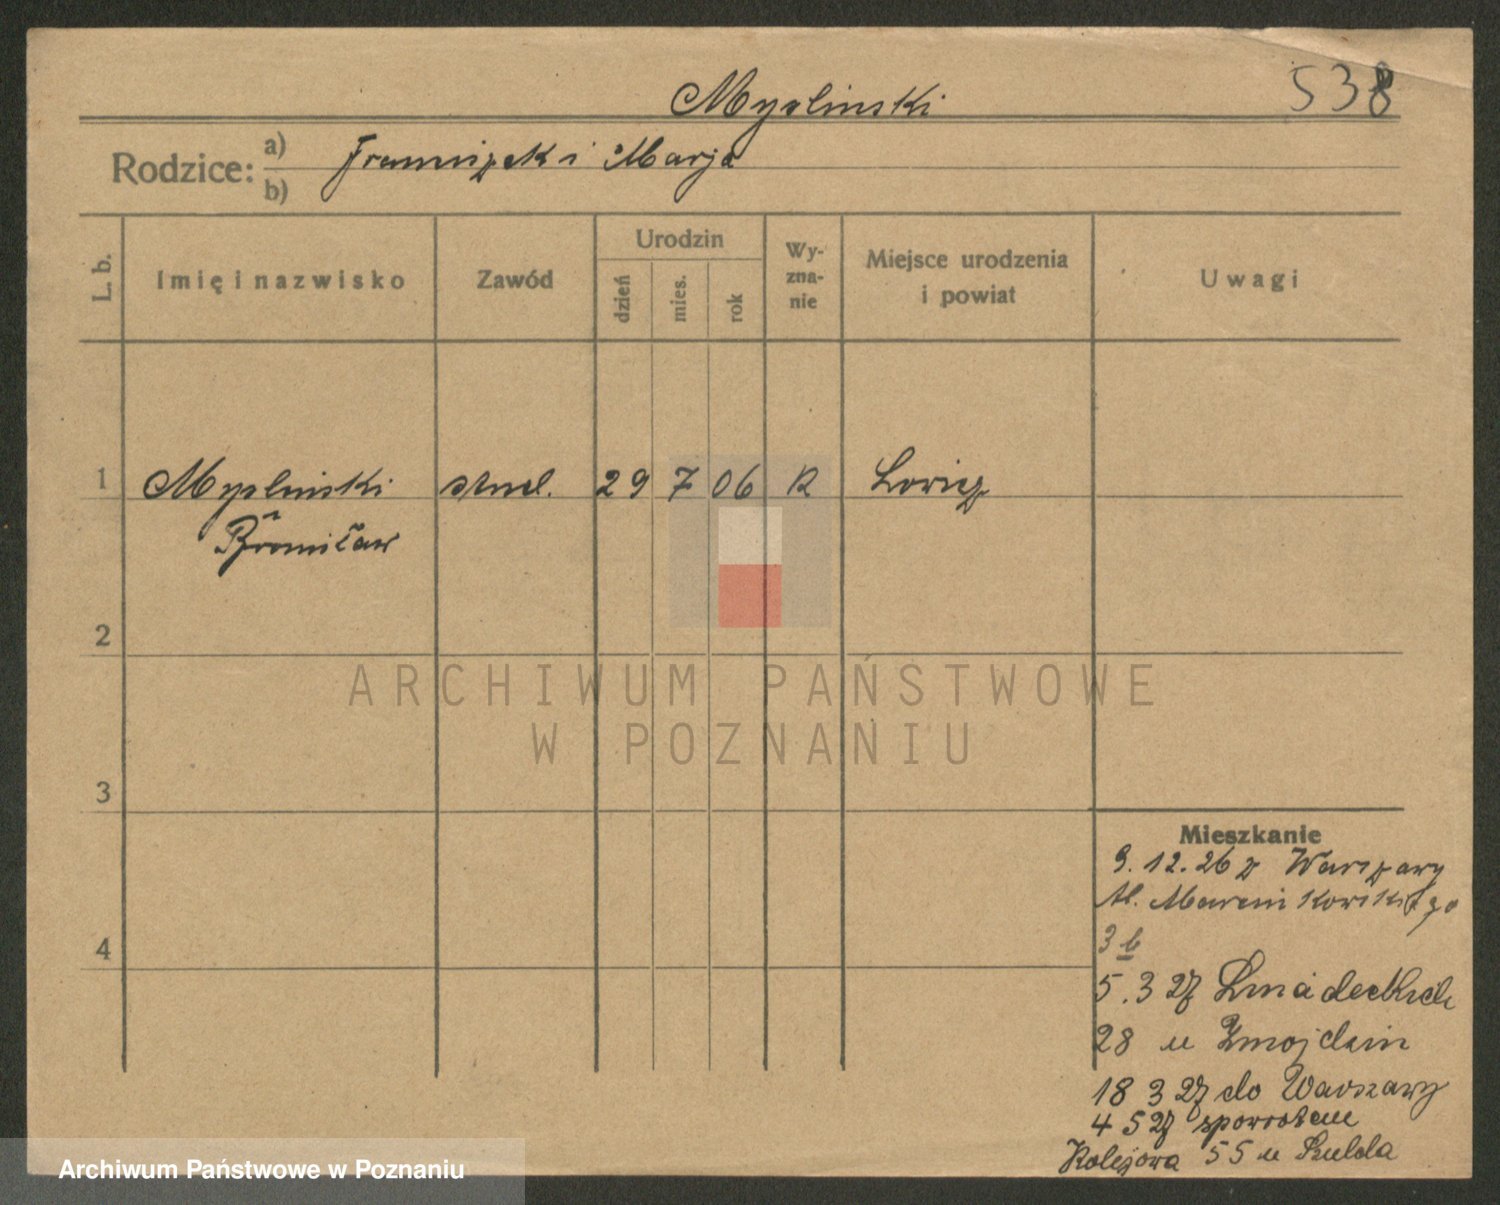 538
Myslinski
Rodzice: a) Franciszek i Marja
b)
L. b.
Imię i nazwisko
Zawód
Urodzin
dzień
mies.
rok
Wy-
zna-
nie
Miejsce urodzenia
i powiat
Uwagi
1 Myslinski stud. 29 7 06 R Lowicz
Bronisław
2
3
4
ARCHIWUM PAŃSTWOWE
W POZNANIU
Mieszkanie
9.12.26 z Warszawy
Al. Marcinkowskiego
3 b
5.3 27 Śniadeckich
28 u
18 3 27 do Warszawy
4 5 27 spowrotem
Kolejowa 55 u Szulda
Archiwum Państwowe w Poznaniu